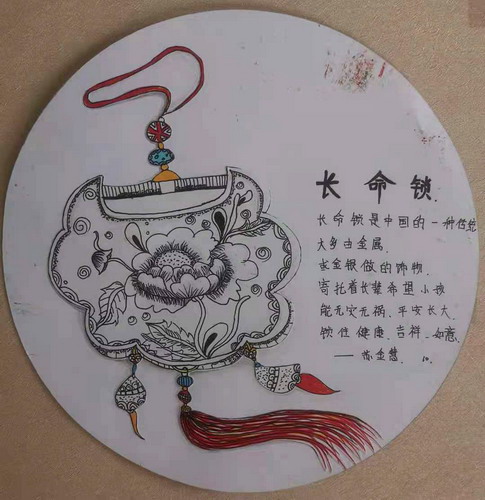 长命锁.
长命锁是中国的一种传统
大多由金属.
或金银做的饰物.
寄托着长辈希望小孩
能无灾元祸、平安长大.
锁住健康、吉祥、如意.
——苏金慧.